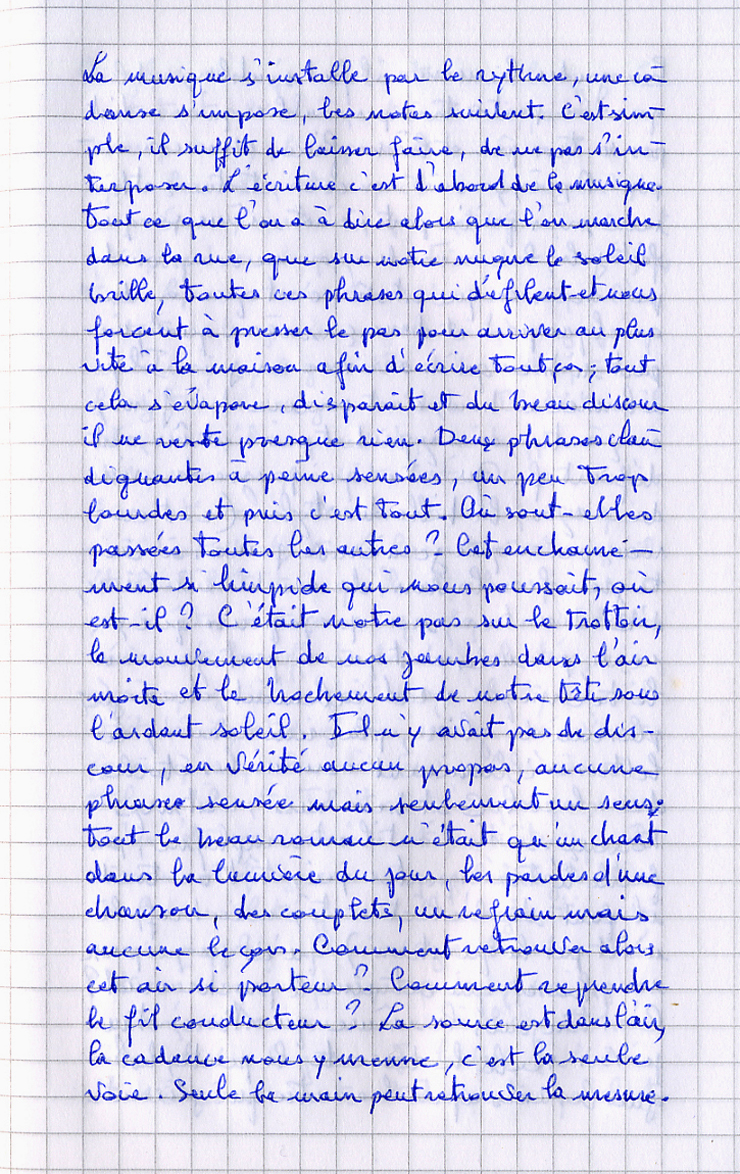 La musique s'installe par le rythme, une ca-
danse s'impose, les notes suivent. C'est sim-
ple, il suffit de laisser faire, de ne pas s'in-
terposer. L'écriture c'est d'abord de la musique.
tout ce que l'on a à dire alors que l'on marche
dans la rue, que sur notre nuque le soleil
brille, toutes ces phrases qui défilent et nous
forcent à presser le pas pour arriver au plus
vite à la maison afin d'écrire tout ça ; tout
cela s'évapore, disparait et du beau discour
il ne reste presque rien. Deux phrases clau-
diquantes à peine sensées, un peu trop
lourdes et puis c'est tout. Où sont-elles
passées toutes les autres ? Cet enchainé-
ment si limpide qui nous poussait, où
est-il ? C'était notre pas sur le trottoir,
le mouvement de nos jambes dans l'air
moite et le hochement de notre tête sous
l'ardent soleil. Il n'y avait pas de dis-
cour, en vérité aucun propos, aucune
phrase sensée mais seulement un sens :
tout le beau roman n'était qu'un chant
dans la lumière du jour, les paroles d'une
chanson, des couplets, un refrain mais
aucune leçon. Comment retrouver alors
cet air si porteur ? Comment reprendre
le fil conducteur ? La source est dans l'air,
la cadence nous y mène, c'est la seule
voie. Seule la main peut retrouver la mesure.